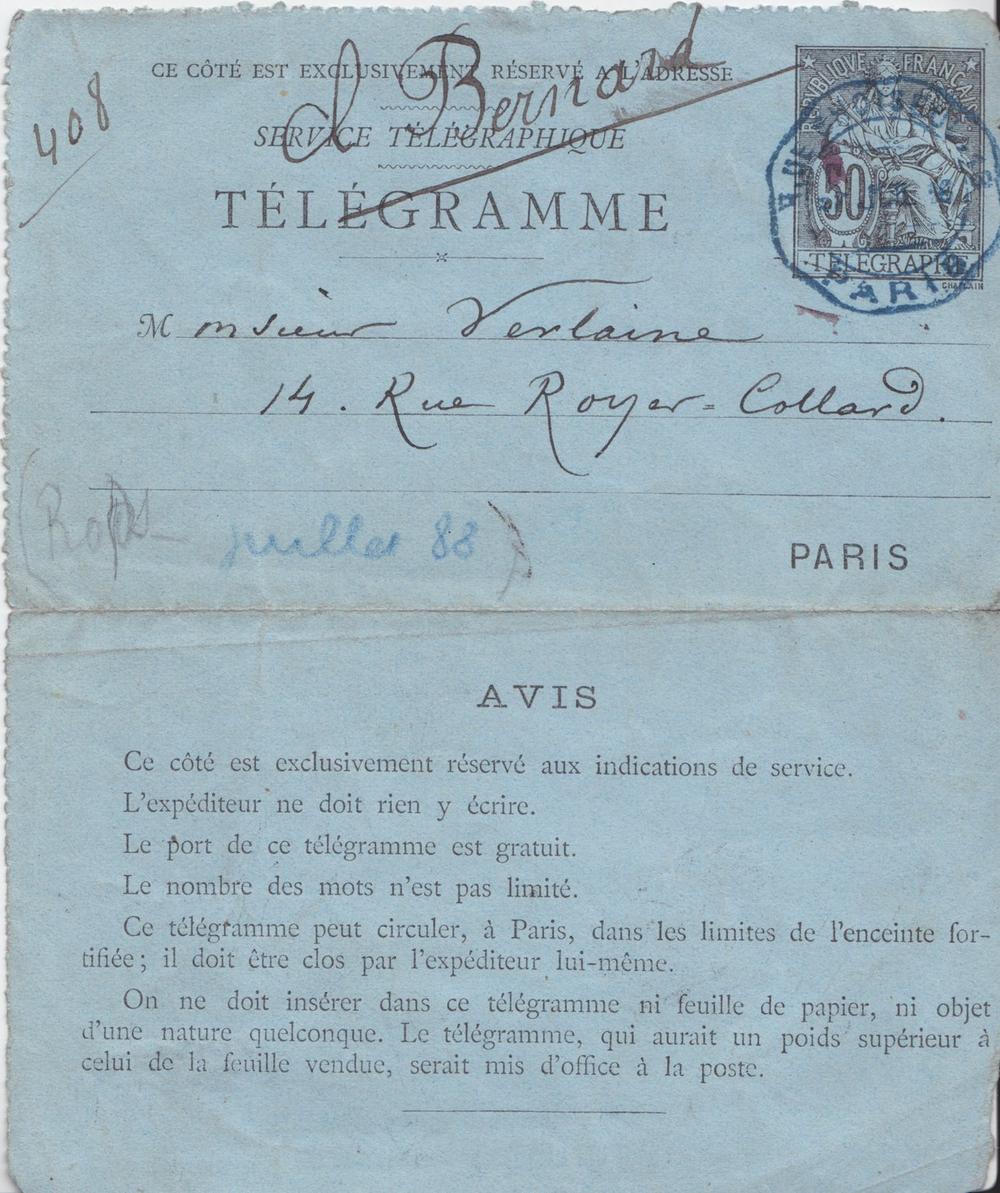 408
Cl Bernard
CE CÔTÉ EST EXCLUSIVEMENT RÉSERVÉ A L'ADRESSE
SERVICE TÉLÉGRAPHIQUE
TÉLÉGRAMME
RÉPUBLIQUE FRANÇAISE
50
TÉLÉGRAPHE
CHAPLAIN
PARIS
Monsieur Verlaine
14. Rue Royer-Collard.
(Rops juillet 88)
PARIS
AVIS
Ce côté est exclusivement réservé aux indications de service.
L'expéditeur ne doit rien y écrire.
Le port de ce télégramme est gratuit.
Le nombre des mots n'est pas limité.
Ce télégramme peut circuler, à Paris, dans les limites de l'enceinte for-
tifiée; il doit être clos par l'expéditeur lui-même.
On ne doit insérer dans ce télégramme ni feuille de papier, ni objet
d'une nature quelconque. Le télégramme, qui aurait un poids supérieur à
celui de la feuille vendue, serait mis d'office à la poste.